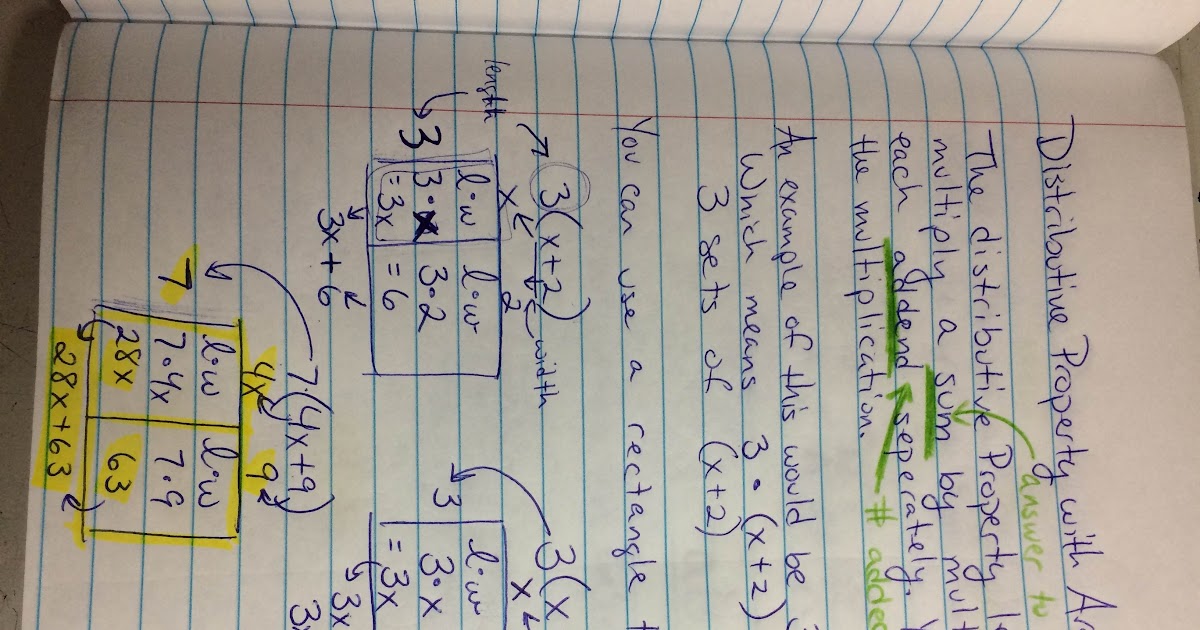 Distributive Property with
answer to
The distributive Property
multiply a sum by
each addend seperately.
the multiplication.
# added
An example of this would be
Which means 3 • (x+2)
3 sets of (x+2)
You can use a rectangle
3(x+2)
width
length
x 2
3
l•w l•w
3•x 3•2
=3x =6
3x + 6
3(x
x
3
l•w
3•x
=3x
3x
7(4x+9)
4x 9
7
l•w l•w
7•4x 7•9
28x 63
28x+63